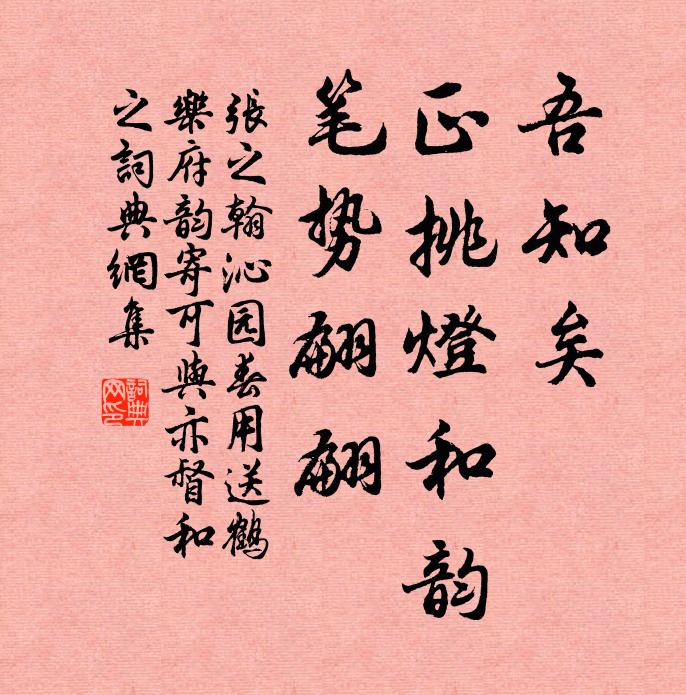 吾知矣
正挑燈和韵
笔势翩翩
張之翰沁园春用送鶴
樂府韵寄可與亦督和
之詞典網集
詞典网印